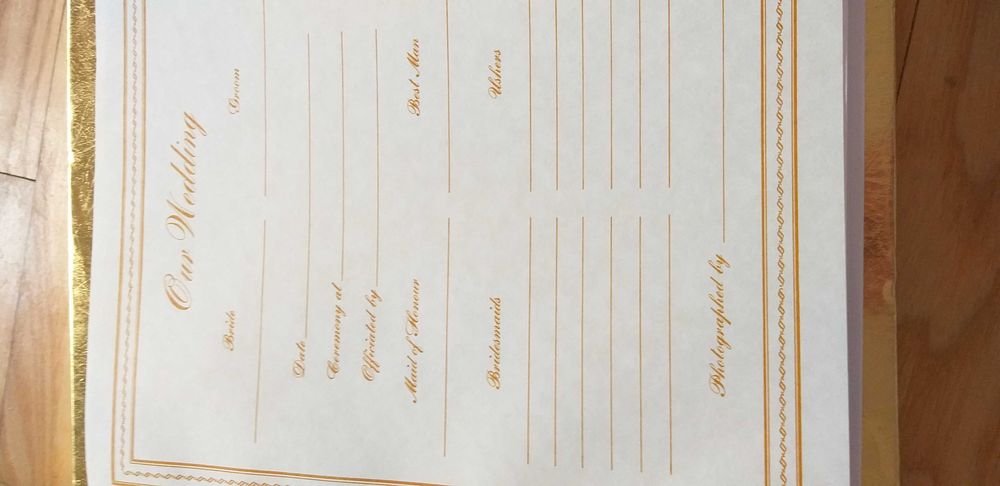 Our Wedding
Bride Groom
Date
Ceremony at
Officiated by
Maid of Honour Best Man
Bridesmaids Ushers
Photographed by